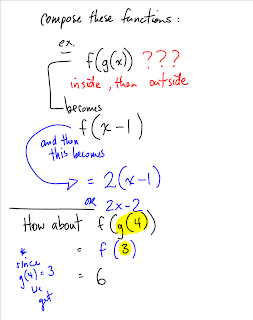 Compose these functions:
ex.
f(g(x)) ???
inside, then outside
becomes
f(x-1)
and then
this becomes
= 2(x-1)
or 2x-2
How about f(g(4))
= f(3)
= 6
*
since
g(4)=3
we
get